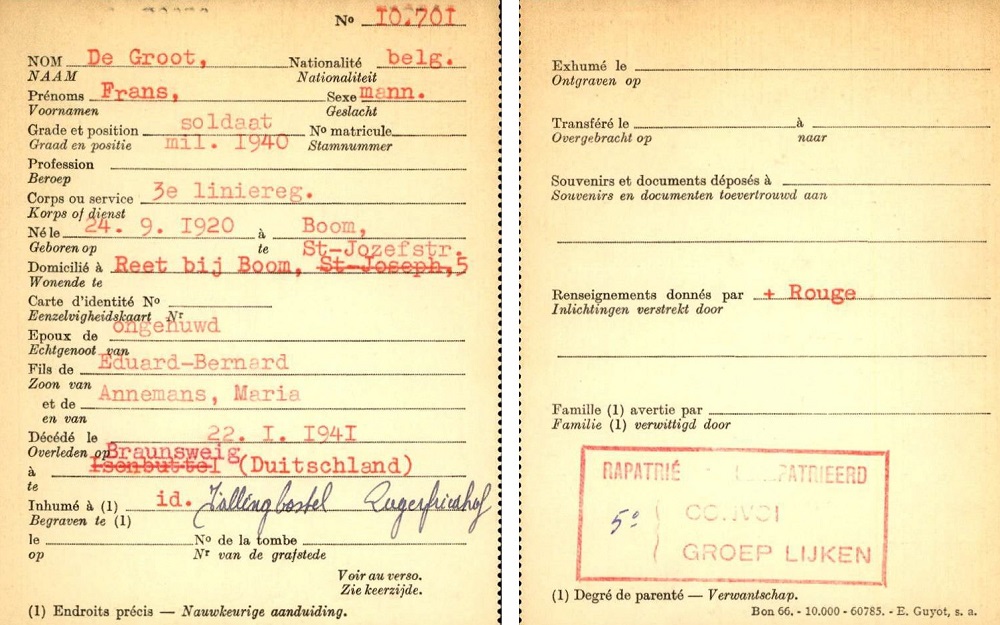 Nº 10.701
NOM De Groot, Nationalité belg.
NAAM Nationaliteit
Prénoms Frans, Sexe mann.
Voornamen Geslacht
Grade et position soldaat Nº matricule
Graad en positie mil. 1940 Stamnummer
Profession
Beroep
Corps ou service 3e liniereg.
Korps of dienst
Né le 24. 9. 1920 à Boom,
Geboren op te St-Jozefstr.
Domicilié à Reet bij Boom, St-Joseph,5
Wonende te
Carte d'identité Nº
Eenzelvigheidskaart Nr
ongehuwd
Epoux de
Echtgenoot van
Fils de Eduard-Bernard
Zoon van
et de Annemans, Maria
en van
Décédé le 22. I. 1941
Overleden op Braunsweig
à Isenbuttel (Duitschland)
te
Inhumé à (1) id. Fallingbostel Lagerfriedhof
Begraven te (1)
le Nº de la tombe
op Nr van de grafstede
Voir au verso.
Zie keerzijde.
(1) Endroits précis — Nauwkeurige aanduiding.
Exhumé le
Ontgraven op
Transféré le à
Overgebracht op naar
Souvenirs et documents déposés à
Souvenirs en documenten toevertrouwd aan
Renseignements donnés par + Rouge
Inlichtingen verstrekt door
Famille (1) avertie par
Familie (1) verwittigd door
RAPATRIÉ PATRIEERD
5e CONVOI
GROEP LIJKEN
(1) Degré de parenté — Verwantschap.
Bon 66. - 10.000 - 60785. - E. Guyot, s. a.